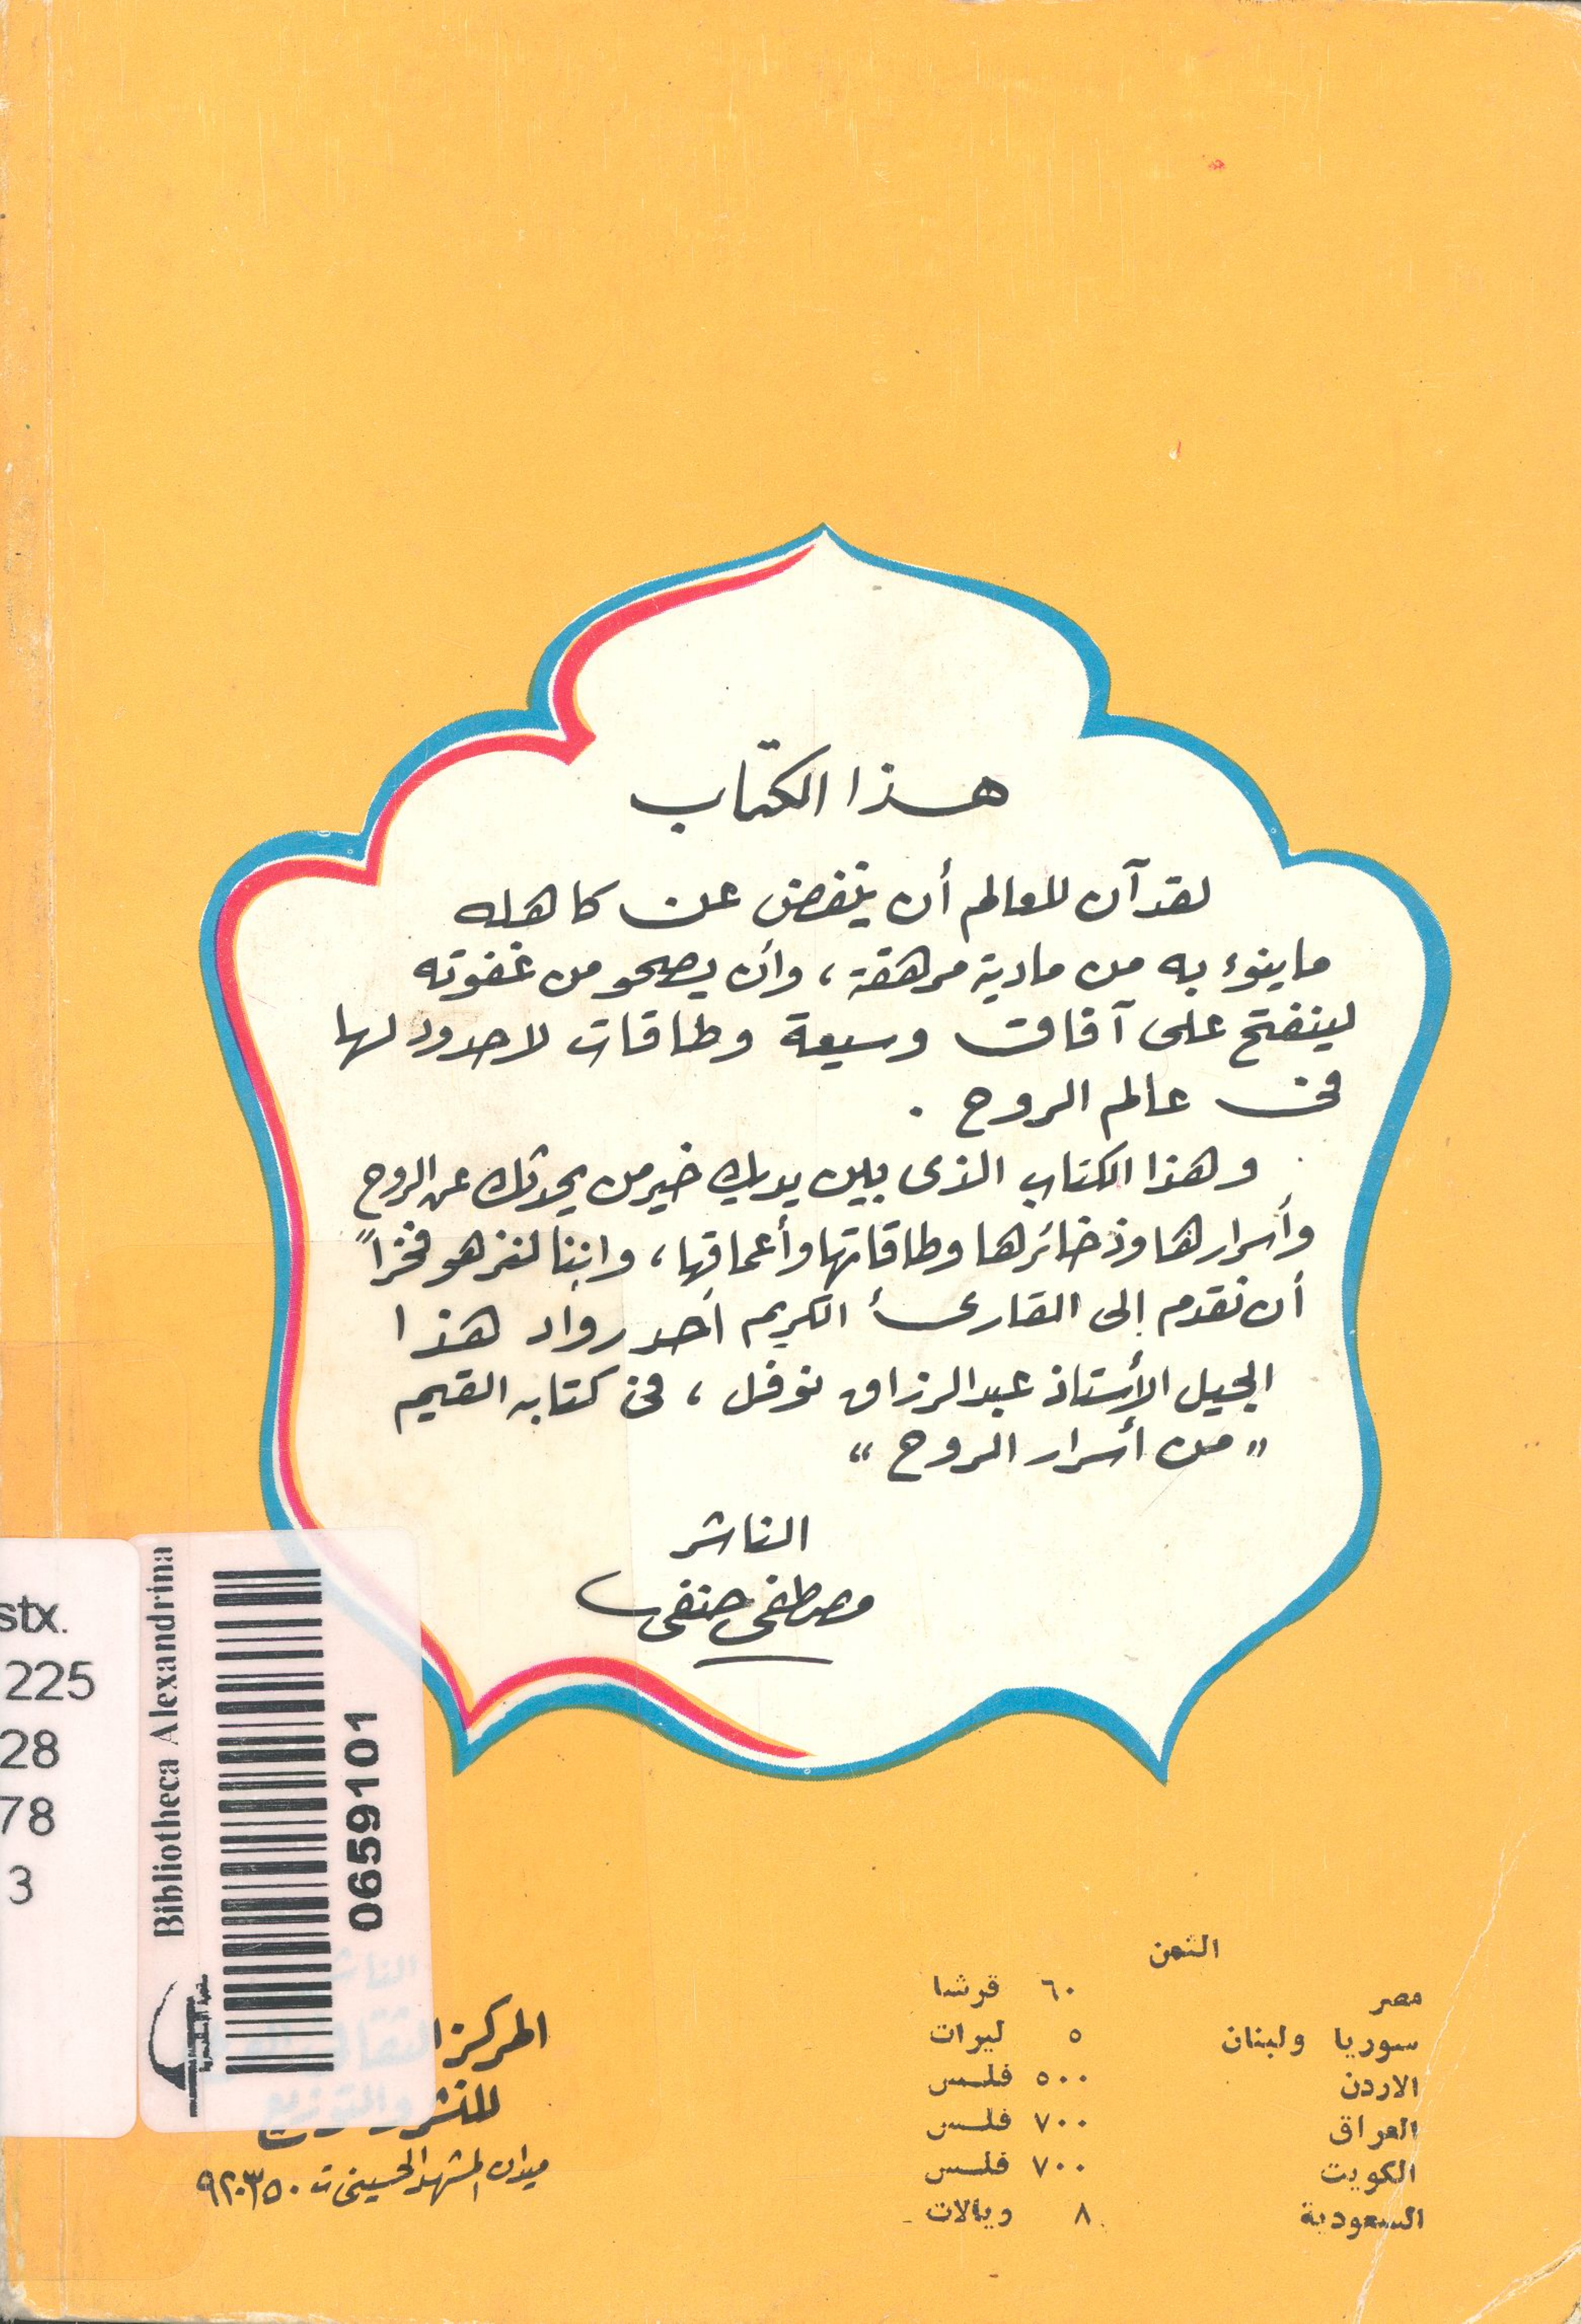 هذا الكتاب
لقد آن للعالم أن ينفض عن كاهله
ما ينوء به من مادية مرهقة ، وأن يصحو من غفوته
لينفتح على آفاق وسيعة وطاقات لا حدود لها
فى عالم الروح .
وهذا الكتاب الذى بين يديك خير من يحدثك عن الروح
وأسرارها وذخائرها وطاقاتها وأعماقها ، وإننا لنزهو فخراً
أن نقدم إلى القارئ الكريم أحد رواد هذا
الجيل الأستاذ عبد الرزاق نوفل ، فى كتابه القيم
" من أسرار الروح "
الناشر
مصطفى حنفى
الثمن
مصر ٦٠ قرشا
سوريا ولبنان ٥ ليرات
الاردن ٥٠٠ فلس
العراق ٧٠٠ فلس
الكويت ٧٠٠ فلس
السعودية ٨ ريالات
الناشر
المركز الثقافى
للنشر والتوزيع
ميدان المشهد الحسينى ت ٩٢٠٣٥٠
Bibliotheca Alexandrina
مكتبة الإسكندرية
0659101
stx.
225
28
78
3